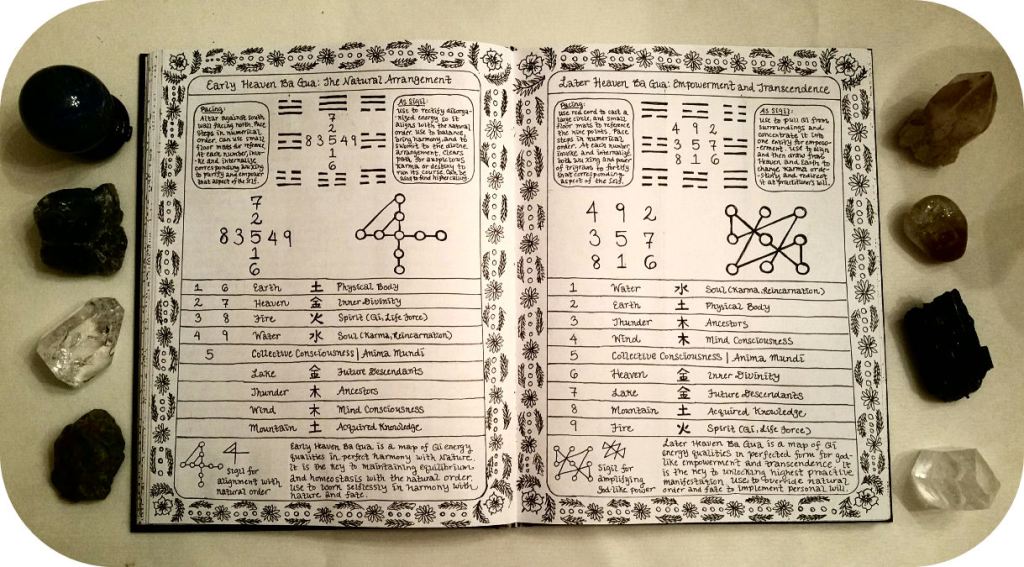 Early Heaven Ba Gua: The Natural Arrangement
Pacing:
Altar against south
wall facing north. Pace
steps in numerical
order. Can use small
floor mats or rederar.
At each number, invo-
ke and internalize
corresponding wu xing
to purify and empower
that aspect of the self.
7
2
8 3 5 4 9
1
6
As Sigil:
Use to rectify disorga-
nized energy so it
aligns with the natural
order. Use to balance,
bring harmony, and to
submit to the divine
arrangement. Clears
path for auspicious
karma or destiny to
run its course. Can be
used to find higher calling.
7
2
8 3 5 4 9
1
6
1 6 Earth 土 Physical Body
2 7 Heaven 金 Inner Divinity
3 8 Fire 火 Spirit (Qi, Life Force)
4 9 Water 水 Soul (Karma, Reincarnation)
5 Collective Consciousness | Anima Mundi
Lake 金 Future Descendants
Thunder 木 Ancestors
Wind 木 Mind Consciousness
Mountain 土 Acquired Knowledge
Sigil for
alignment with
natural order
Early Heaven Ba Gua is a map of Qi energy
qualities in perfect harmony with Nature.
It is the key to maintaining equilibrium
and homeostasis with the natural order.
Use to work selflessly in harmony with
nature and fate.
Later Heaven Ba Gua: Empowerment and Transcendence
Pacing:
Use red cord to cast a
large circle, and small
floor mats to reference
the nine points. Pace
steps in numerical
order. At each number,
invoke and internalize
both wu xing and power
of trigram to fortify
that corresponding
aspect of the self.
4 9 2
3 5 7
8 1 6
As Sigil:
Use to pull Qi from
surroundings and
concentrate it into
one entity for empow-
erment. Use to align
and then draw from
Heaven and Earth to
change karma or de-
stiny and redirect
it at practitioner's will.
4 9 2
3 5 7
8 1 6
1 Water 水 Soul (Karma, Reincarnation)
2 Earth 土 Physical Body
3 Thunder 木 Ancestors
4 Wind 木 Mind Consciousness
5 Collective Consciousness | Anima Mundi
6 Heaven 金 Inner Divinity
7 Lake 金 Future Descendants
8 Mountain 土 Acquired Knowledge
9 Fire 火 Spirit (Qi, Life Force)
Sigil for
amplifying
god-like power
Later Heaven Ba Gua is a map of Qi
energy qualities in perfected form for god-
like empowerment and transcendence. It
is the key to unlocking highest proactive
manifestation. Use to override natural
order and fate to implement personal will.